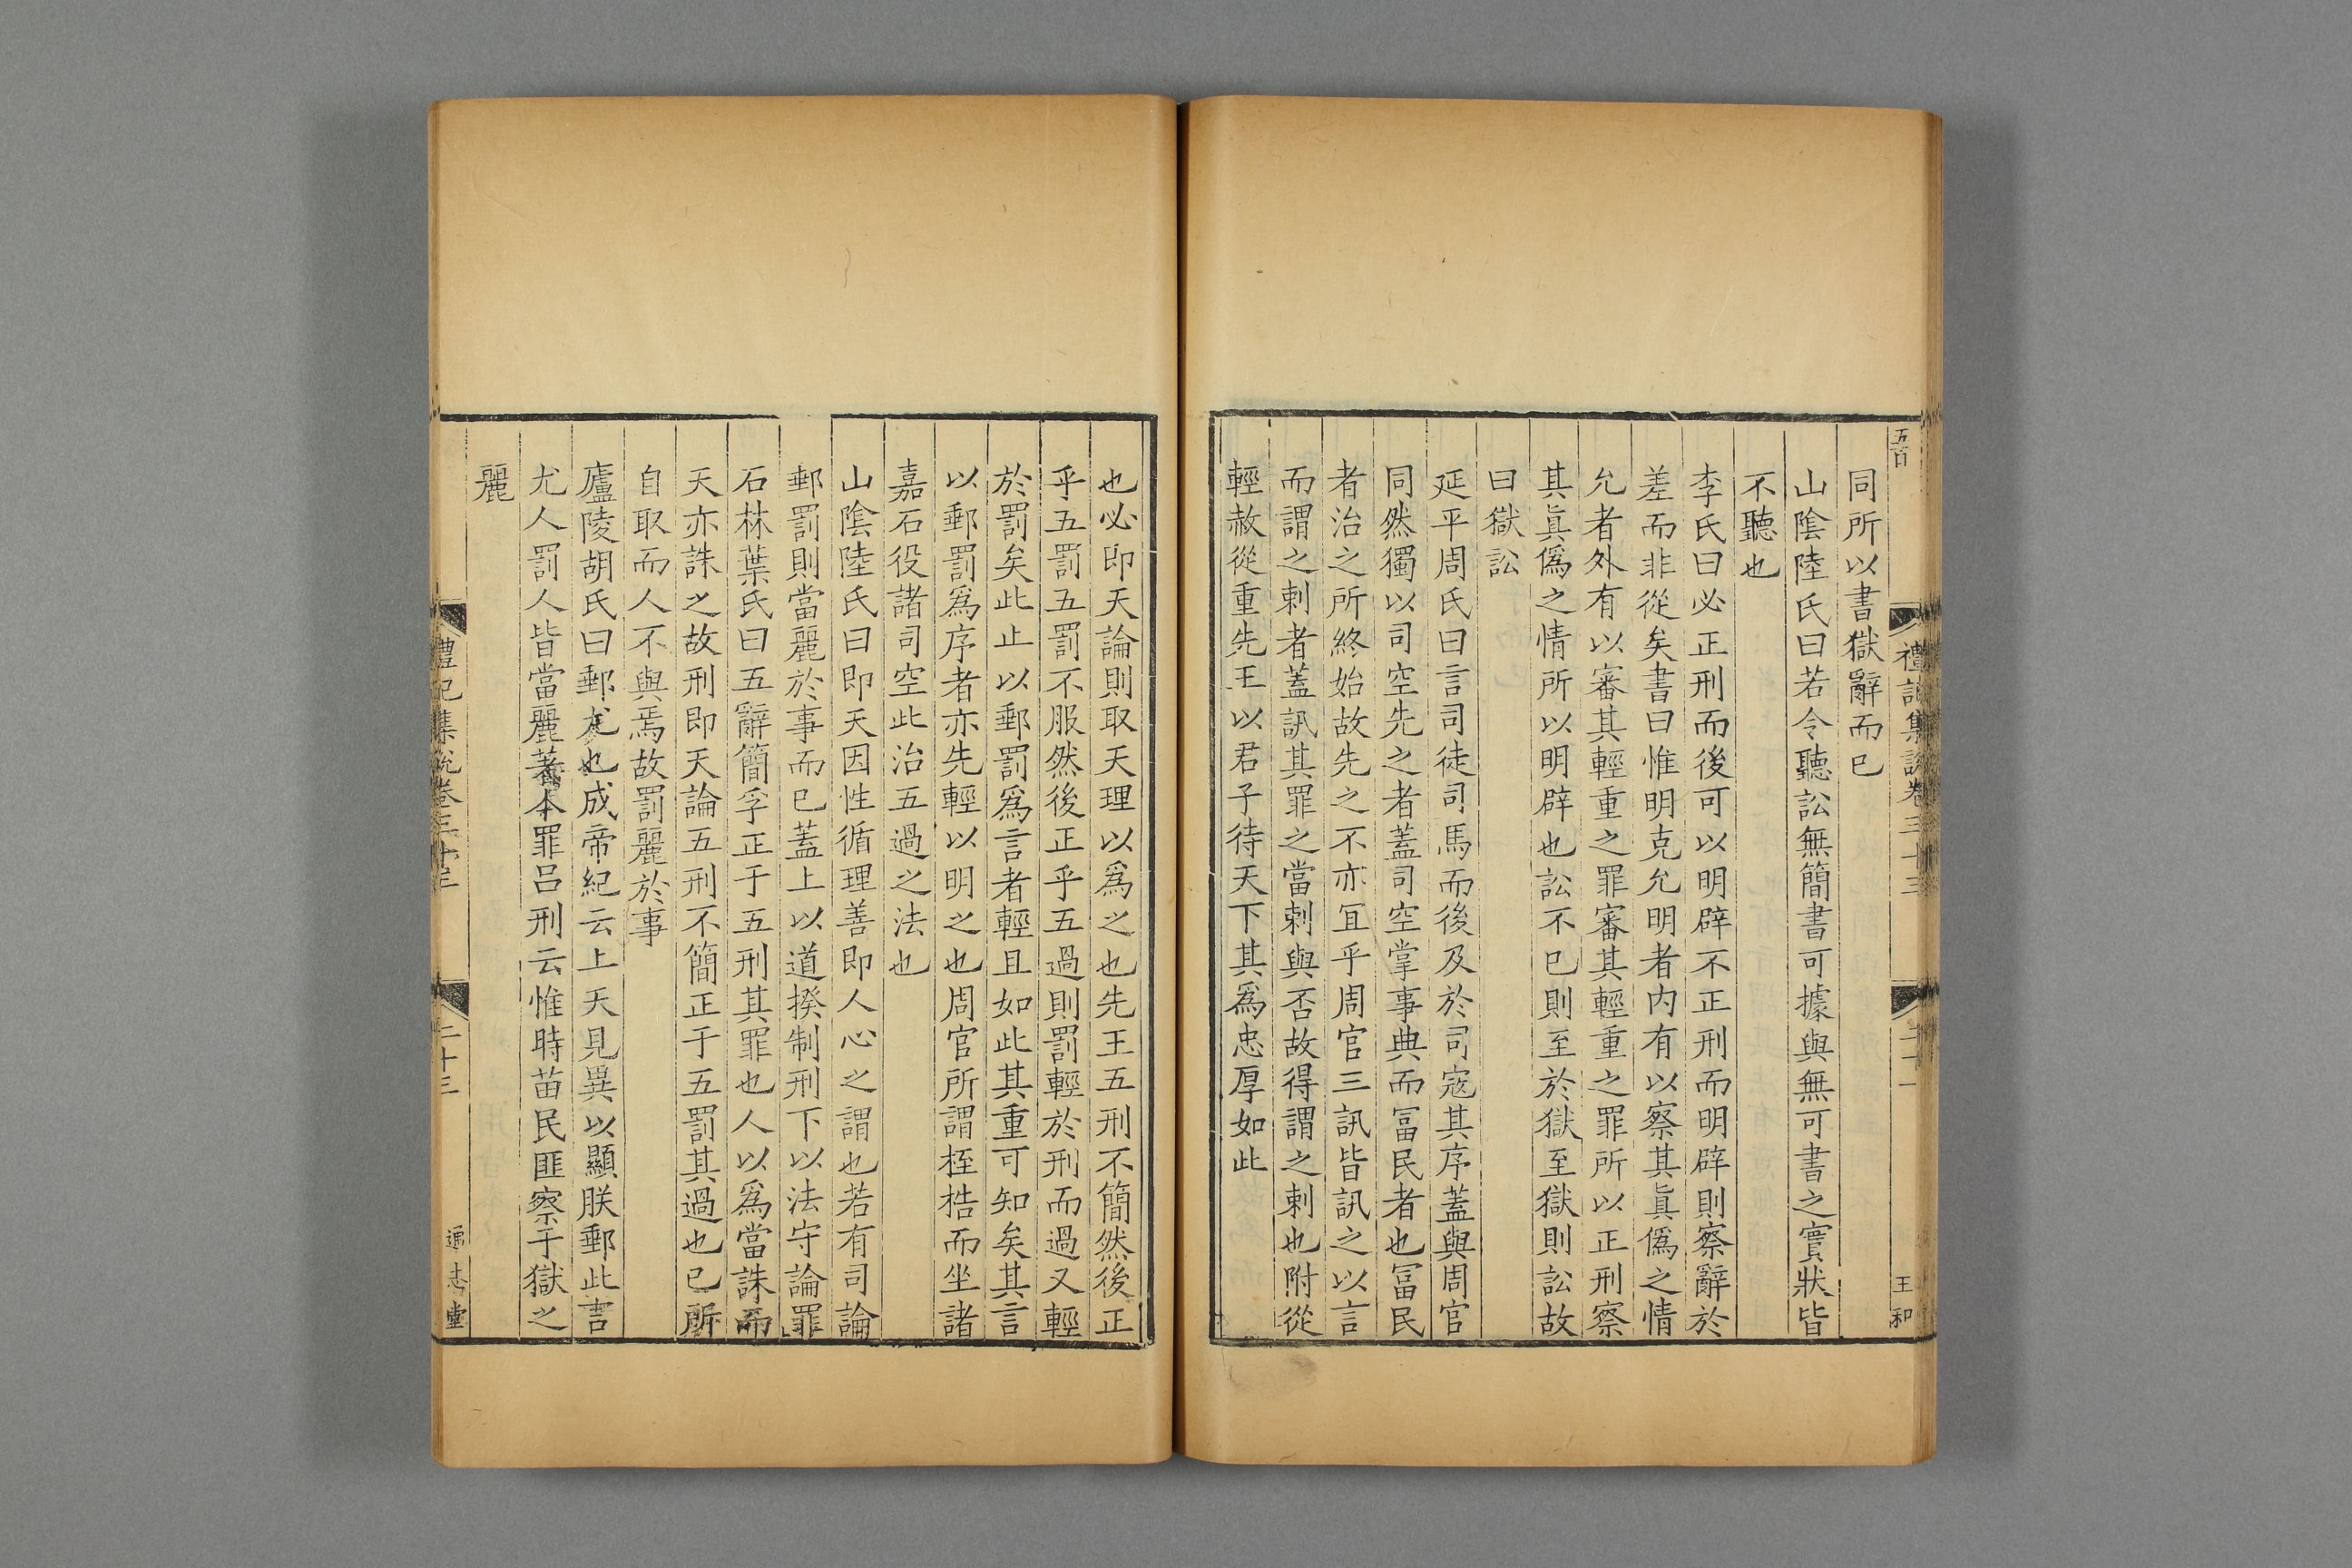 五百
禮記集說卷三十三
王和
同所以書獄辭而已
山陰陸氏曰若今聽訟無簡書可據與無可書之實狀皆
不聽也
李氏曰必正刑而後可以明辟不正刑而明辟則察辭於
差而非從矣書曰惟明克允明者內有以察其眞僞之情
允者外有以審其輕重之罪審其輕重之罪所以正刑察
其眞僞之情所以明辟也訟不已則至於獄至獄則訟故
曰獄訟
延平周氏曰言司徒司馬而後及於司寇其序蓋與周官
同然獨以司空先之者蓋司空掌事典而冨民者也冨民
者治之所終始故先之不亦宜乎周官三訊皆訊之以言
而謂之刺者蓋訊其罪之當刺與否故得謂之刺也附從
輕赦從重先王以君子待天下其爲忠厚如此
也必即天論則取天理以爲之也先王五刑不簡然後正
乎五罰五罰不服然後正乎五過則罰輕於刑而過又輕
於罰矣此止以郵罰爲言者輕且如此其重可知矣其言
以郵罰爲序者亦先輕以明之也周官所謂桎梏而坐諸
嘉石役諸司空此治五過之法也
山陰陸氏曰即天因性循理善即人心之謂也若有司論
郵罰則當麗於事而已蓋上以道揆制刑下以法守論罪
石林葉氏曰五辭簡孚正于五刑其罪也人以爲當誅而
天亦誅之故刑即天論五刑不簡正于五罰其過也已所
自取而人不與焉故罰麗於事
廬陵胡氏曰郵尤也成帝紀云上天見異以顯朕郵此言
尤人罰人皆當麗著本罪呂刑云惟時苗民匪察于獄之
麗
禮記集說卷三十三
二十三
通志堂